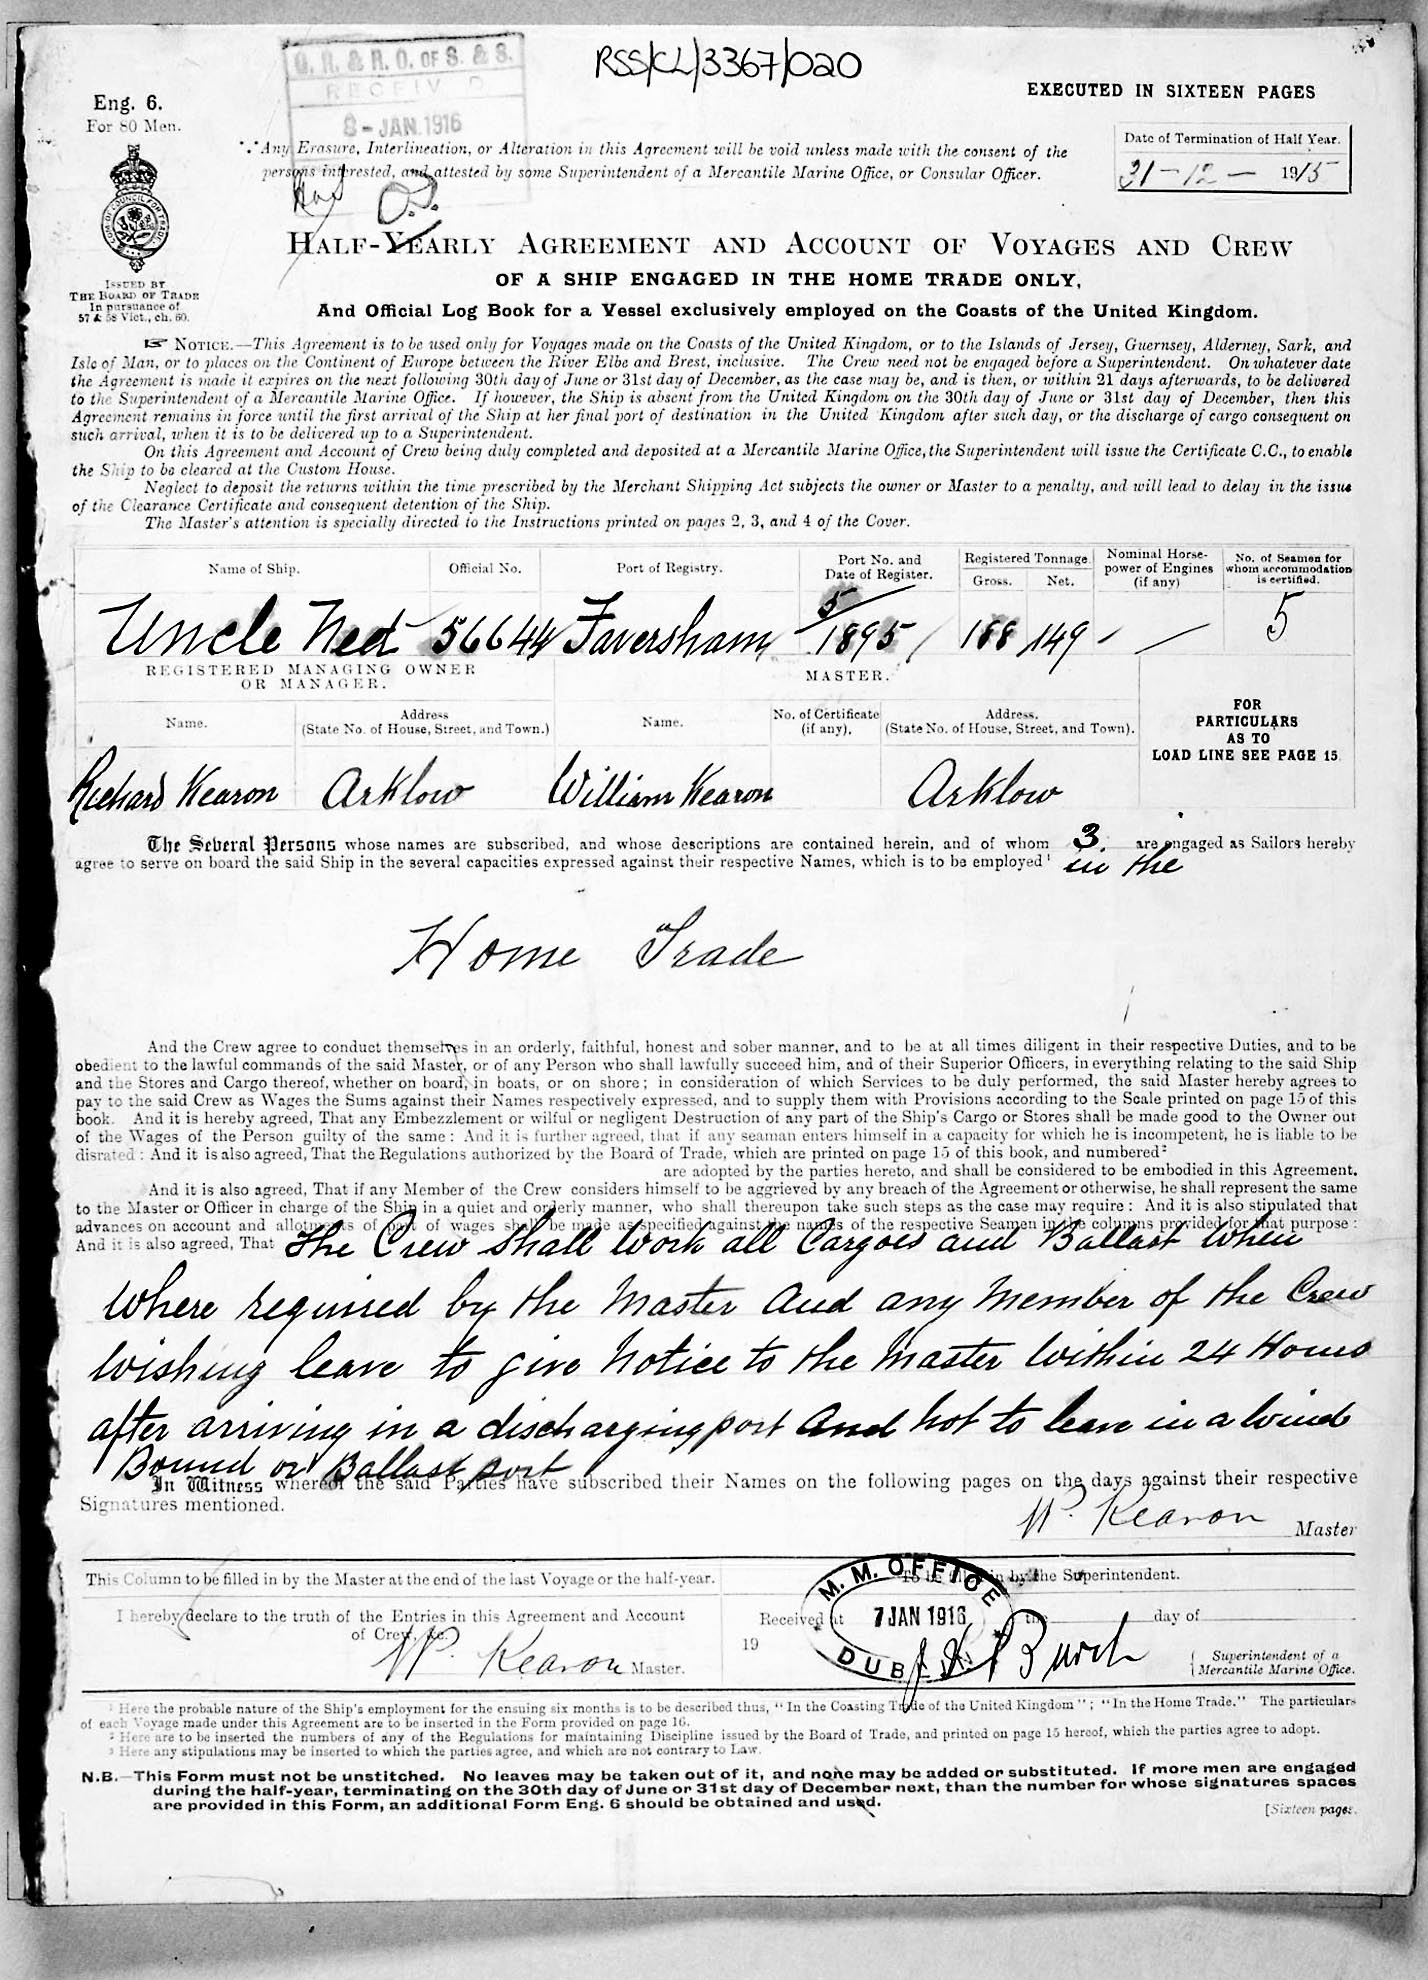 RSS/CL/3367/020
EXECUTED IN SIXTEEN PAGES
Eng. 6.
For 80 Men.
ISSUED BY
THE BOARD OF TRADE
In pursuance of
57 & 58 Vict., ch. 60.
G. R. & R. O. OF S. & S.
RECEIV D
8 - JAN. 1916
Date of Termination of Half Year.
31 - 12 - 1915
Any Erasure, Interlineation, or Alteration in this Agreement will be void unless made with the consent of the
persons interested, and attested by some Superintendent of a Mercantile Marine Office, or Consular Officer.
HALF-YEARLY AGREEMENT AND ACCOUNT OF VOYAGES AND CREW
OF A SHIP ENGAGED IN THE HOME TRADE ONLY,
And Official Log Book for a Vessel exclusively employed on the Coasts of the United Kingdom.
☞ NOTICE.—This Agreement is to be used only for Voyages made on the Coasts of the United Kingdom, or to the Islands of Jersey, Guernsey, Alderney, Sark, and
Isle of Man, or to places on the Continent of Europe between the River Elbe and Brest, inclusive. The Crew need not be engaged before a Superintendent. On whatever date
the Agreement is made it expires on the next following 30th day of June or 31st day of December, as the case may be, and is then, or within 21 days afterwards, to be delivered
to the Superintendent of a Mercantile Marine Office. If however, the Ship is absent from the United Kingdom on the 30th day of June or 31st day of December, then this
Agreement remains in force until the first arrival of the Ship at her final port of destination in the United Kingdom after such day, or the discharge of cargo consequent on
such arrival, when it is to be delivered up to a Superintendent.
On this Agreement and Account of Crew being duly completed and deposited at a Mercantile Marine Office, the Superintendent will issue the Certificate C.C., to enable
the Ship to be cleared at the Custom House.
Neglect to deposit the returns within the time prescribed by the Merchant Shipping Act subjects the owner or Master to a penalty, and will lead to delay in the issue
of the Clearance Certificate and consequent detention of the Ship.
The Master's attention is specially directed to the Instructions printed on pages 2, 3, and 4 of the Cover.
Name of Ship. Official No. Port of Registry. Port No. and Date of Register. Registered Tonnage Gross. Net. Nominal Horse-power of Engines (if any) No. of Seamen for whom accommodation is certified.
Uncle Ned 56644 Faversham 5/1895 188 149 5
REGISTERED MANAGING OWNER
OR MANAGER.
MASTER.
Name. Address (State No. of House, Street, and Town.) Name. No. of Certificate (if any). Address. (State No. of House, Street, and Town).
FOR
PARTICULARS
AS TO
LOAD LINE SEE PAGE 15
Richard Kearon Arklow William Kearon Arklow
The Several Persons whose names are subscribed, and whose descriptions are contained herein, and of whom 3. are engaged as Sailors hereby
agree to serve on board the said Ship in the several capacities expressed against their respective Names, which is to be employed¹ in the
Home Trade
And the Crew agree to conduct themselves in an orderly, faithful, honest and sober manner, and to be at all times diligent in their respective Duties, and to be
obedient to the lawful commands of the said Master, or of any Person who shall lawfully succeed him, and of their Superior Officers, in everything relating to the said Ship
and the Stores and Cargo thereof, whether on board, in boats, or on shore; in consideration of which Services to be duly performed, the said Master hereby agrees to
pay to the said Crew as Wages the Sums against their Names respectively expressed, and to supply them with Provisions according to the Scale printed on page 15 of this
book. And it is hereby agreed, That any Embezzlement or wilful or negligent Destruction of any part of the Ship's Cargo or Stores shall be made good to the Owner out
of the Wages of the Person guilty of the same: And it is further agreed, that if any seaman enters himself in a capacity for which he is incompetent, he is liable to be
disrated: And it is also agreed, That the Regulations authorized by the Board of Trade, which are printed on page 15 of this book, and numbered²
are adopted by the parties hereto, and shall be considered to be embodied in this Agreement.
And it is also agreed, That if any Member of the Crew considers himself to be aggrieved by any breach of the Agreement or otherwise, he shall represent the same
to the Master or Officer in charge of the Ship in a quiet and orderly manner, who shall thereupon take such steps as the case may require: And it is also stipulated that
advances on account and allotments of part of wages shall be made as specified against the names of the respective Seamen in the columns provided for that purpose:
And it is also agreed, That The Crew Shall Work all Cargoes and Ballast when
Where required by the Master And any Member of the Crew
Wishing leave to give Notice to the Master Within 24 Hours
after arriving in a discharging port And Not to leave in a Wind
Bound or Ballast port
In Witness whereof the said Parties have subscribed their Names on the following pages on the days against their respective
Signatures mentioned.
W. Kearon Master
This Column to be filled in by the Master at the end of the last Voyage or the half-year.
To be filled in by the Superintendent.
I hereby declare to the truth of the Entries in this Agreement and Account
of Crew, &c.
W. Kearon Master.
Received at the day of
19
M. M. OFFICE
7 JAN 1916
DUBLIN
Burch
Superintendent of a
Mercantile Marine Office.
¹ Here the probable nature of the Ship's employment for the ensuing six months is to be described thus, "In the Coasting Trade of the United Kingdom"; "In the Home Trade." The particulars
of each Voyage made under this Agreement are to be inserted in the Form provided on page 16.
² Here are to be inserted the numbers of any of the Regulations for maintaining Discipline issued by the Board of Trade, and printed on page 15 hereof, which the parties agree to adopt.
³ Here any stipulations may be inserted to which the parties agree, and which are not contrary to Law.
N.B.—This Form must not be unstitched. No leaves may be taken out of it, and none may be added or substituted. If more men are engaged
during the half-year, terminating on the 30th day of June or 31st day of December next, than the number for whose signatures spaces
are provided in this Form, an additional Form Eng. 6 should be obtained and used.
[Sixteen pages.